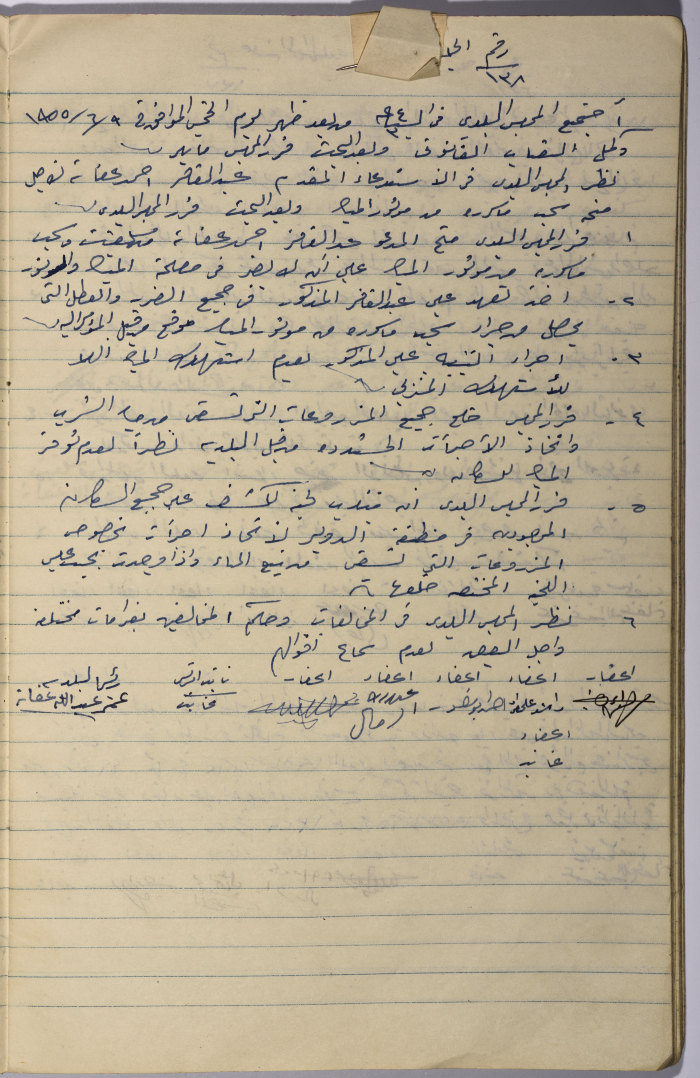 رقم الجلسة
١٣٨
أجتمع المجلس البلدي في الساعة من بعد ظهر يوم الخميس الموافق في ١٩٥٥/٦/٩
وكمل النصاب القانوني وبعد البحث قرر المجلس مايلي
نظر المجلس البلدي في الاستدعاء المقدم عبد القادر احمد عفانة لاجل
منحه سحب ماسورة من موتور المياه وبعد البحث قرر المجلس البلدي
١ قرر المجلس البلدي منح المدعو عبد القادر احمد عفانة وسحب
ماسورة من موتور المياه على أن لا تضر في مصلحة المياه والموتور
٢- اخذ تعهد على عبد القادر المذكور في جميع الضرر والعطل التي
يحصل من جراء سحب ماسورة من موتور المياه موقع من قبل
٣- اجراء التنبيه على المذكور بعدم استهلاك المياه الا
للأستهلاك المنزلي
٤- قرر المجلس خلع جميع المزروعات التي تسقى من مياه الشرب
واتخاذ الأجراءات المشددة من قبل البلدية نظراً لعدم توفر
المياه للسكان
٥- قرر المجلس البلدي ان تنتدب لجنة لكشف على جميع السكان
الموجودين في منطقة الدوير لاتخاذ اجراءات بخصوص
المزروعات التي تسقى من نبع الماء واذا وجدت يجب على
اللجنة المختصة خلعها
٦ نظر المجلس البلدي في المخالفات وحكم المخالفين بغرامات مختلفة
واجل البعض لعدم سماع اقوالهم
اعضاء اعضاء اعضاء اعضاء اعضاء نائب الرئيس رئيس البلدية
غائب عمر عبد الله عفانة
اعضاء
غائب